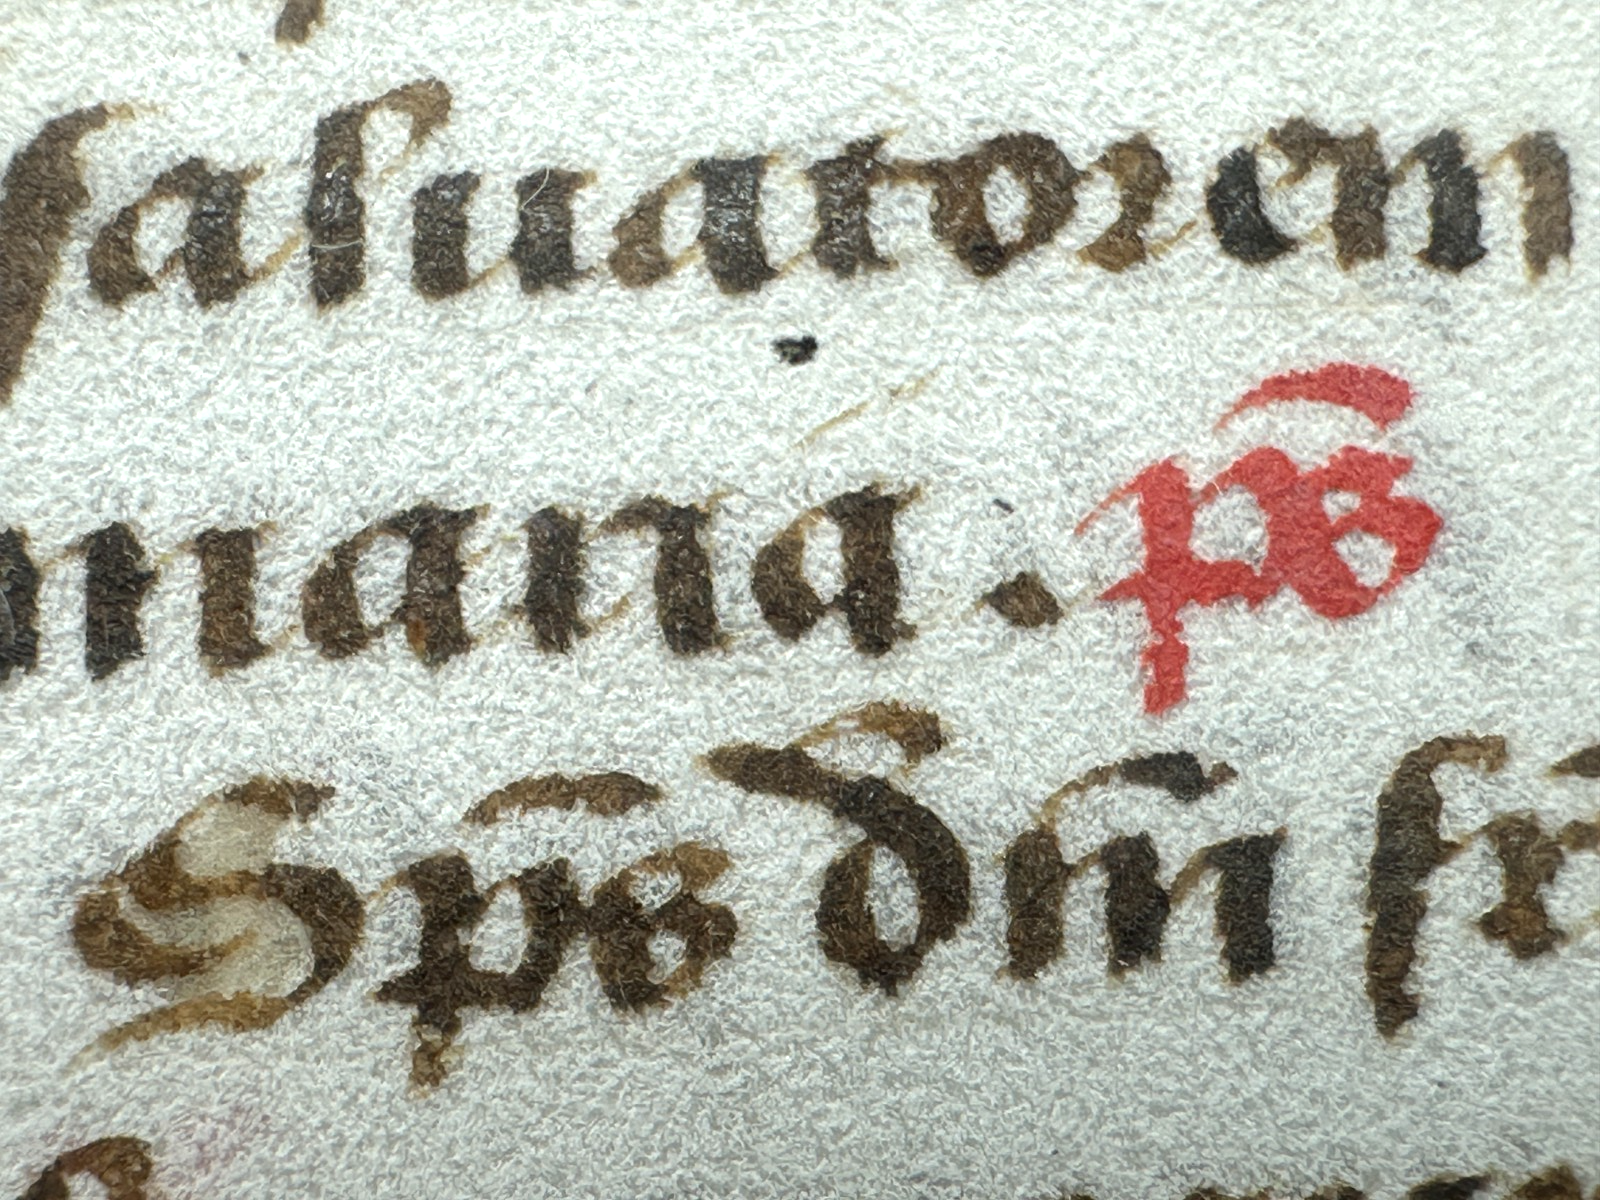 saluatorem
mana. ps̄
Sps̄ dm̄